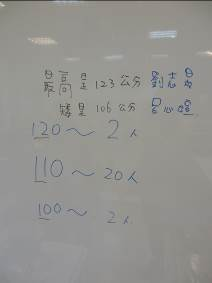 最高是123公分 劉志
矮是106公分 心
120～2人
110～20人
100～2人